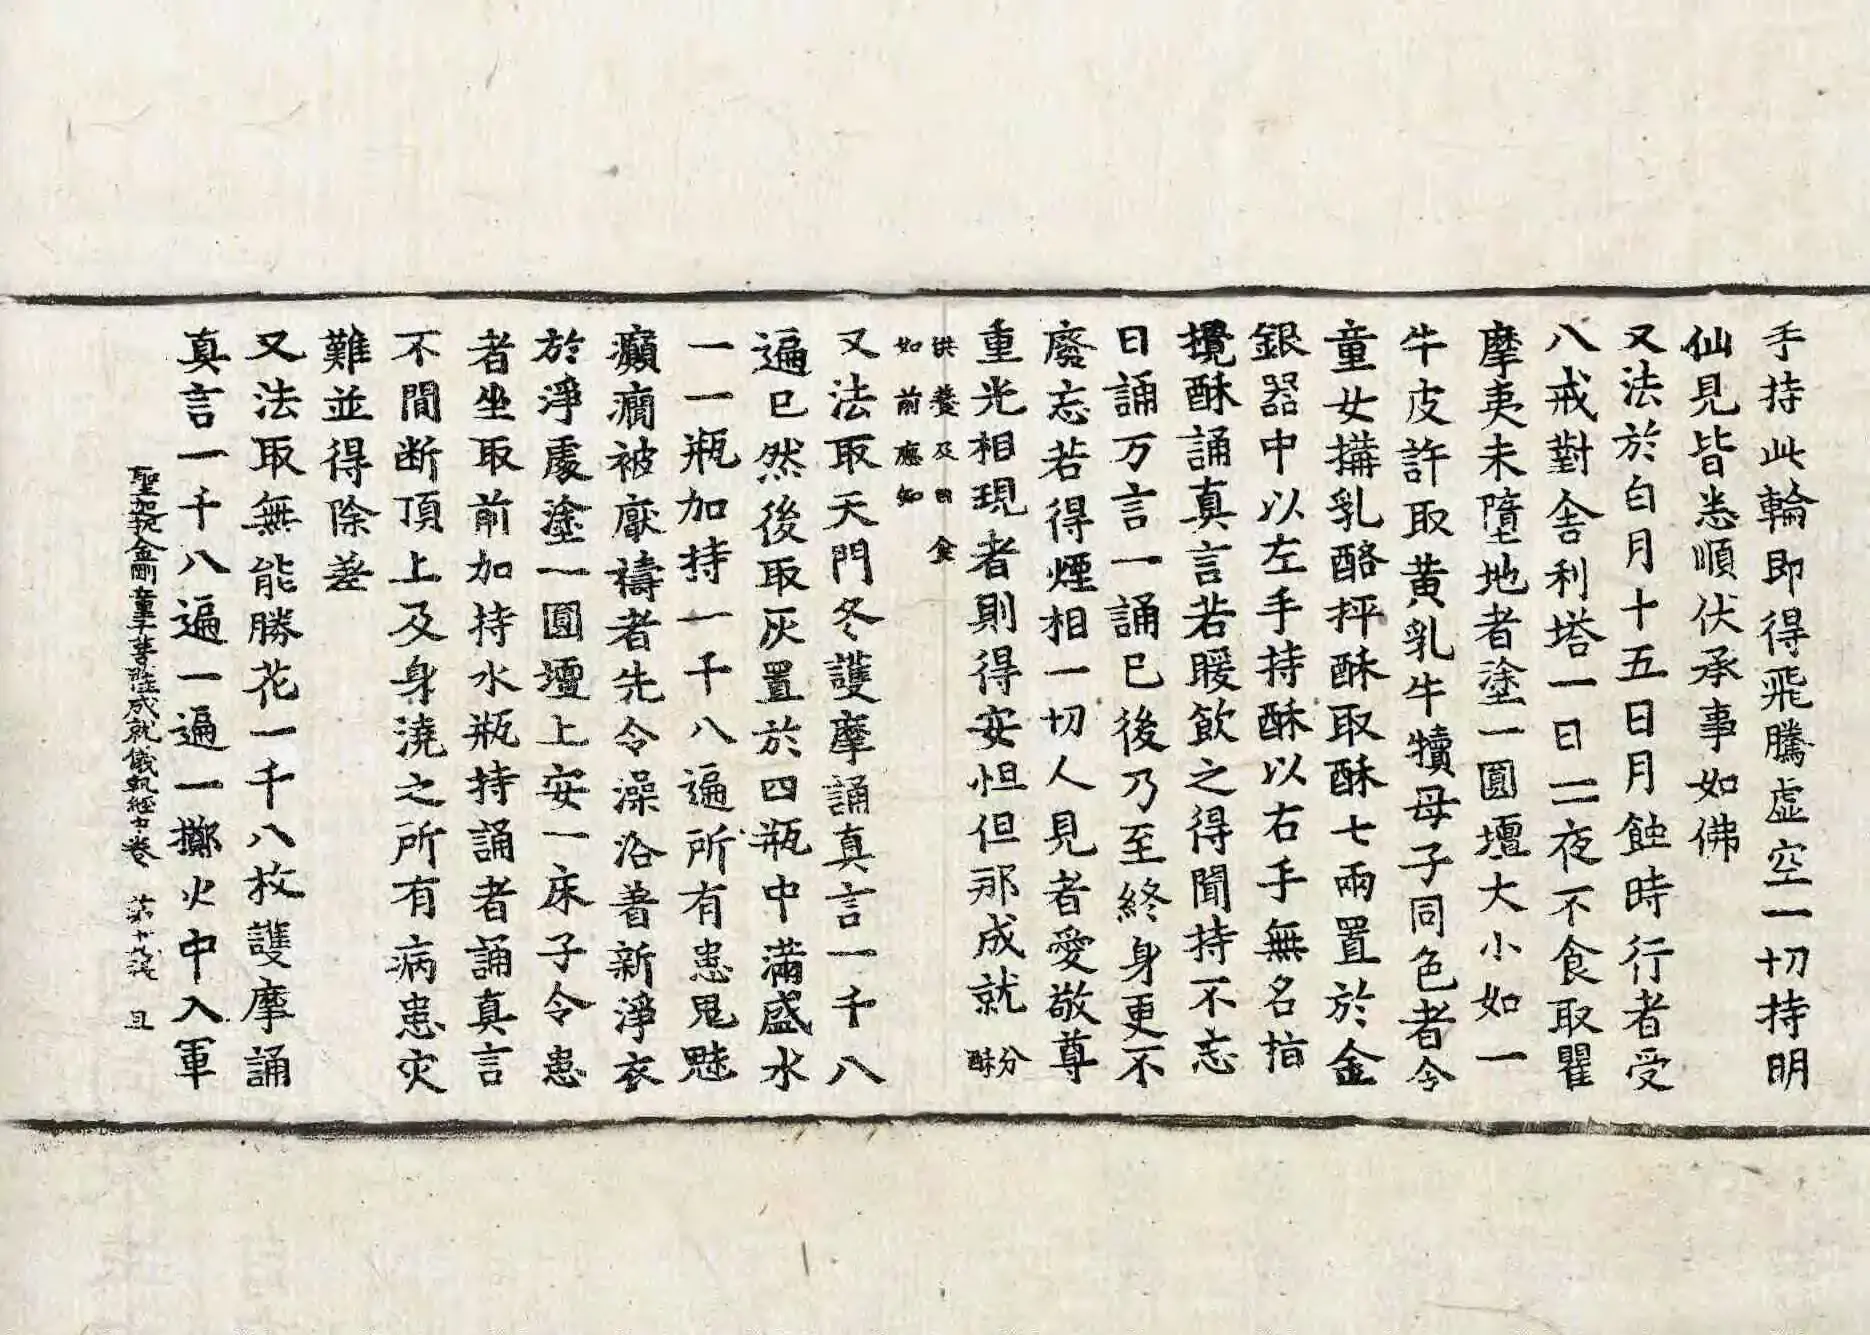 手持此輪即得飛騰虛空一切持明
仙見皆悉順伏承事如佛
又法於白月十五日月蝕時行者受
八戒對舍利塔一日二夜不食取瞿
摩夷未墮地者塗一圓壇大小如一
牛皮許取黄乳牛犢母子同色者令
童女搆乳酪抨酥取酥七兩置於金
銀器中以左手持酥以右手無名指
攪酥誦真言若暖飲之得聞持不忘
日誦万言一誦已後乃至終身更不
廢忘若得煙相一切人見者愛敬尊
重光相現者則得安怛但那成就 分酥
供養及自食
如前應知
又法取天門冬護摩誦真言一千八
遍已然後取灰置於四瓶中滿盛水
一一瓶加持一千八遍所有患鬼魅
癲癇被厭禱者先令澡浴著新淨衣
於淨處塗一圓壇上安一床子令患
者坐取前加持水瓶持誦者誦真言
不間断頂上及身澆之所有病患灾
難並得除差
又法取無能勝花一千八枚護摩誦
真言一千八遍一遍一擲火中入軍
聖加抳金剛童子菩薩成就儀軌經卷 第十 丑